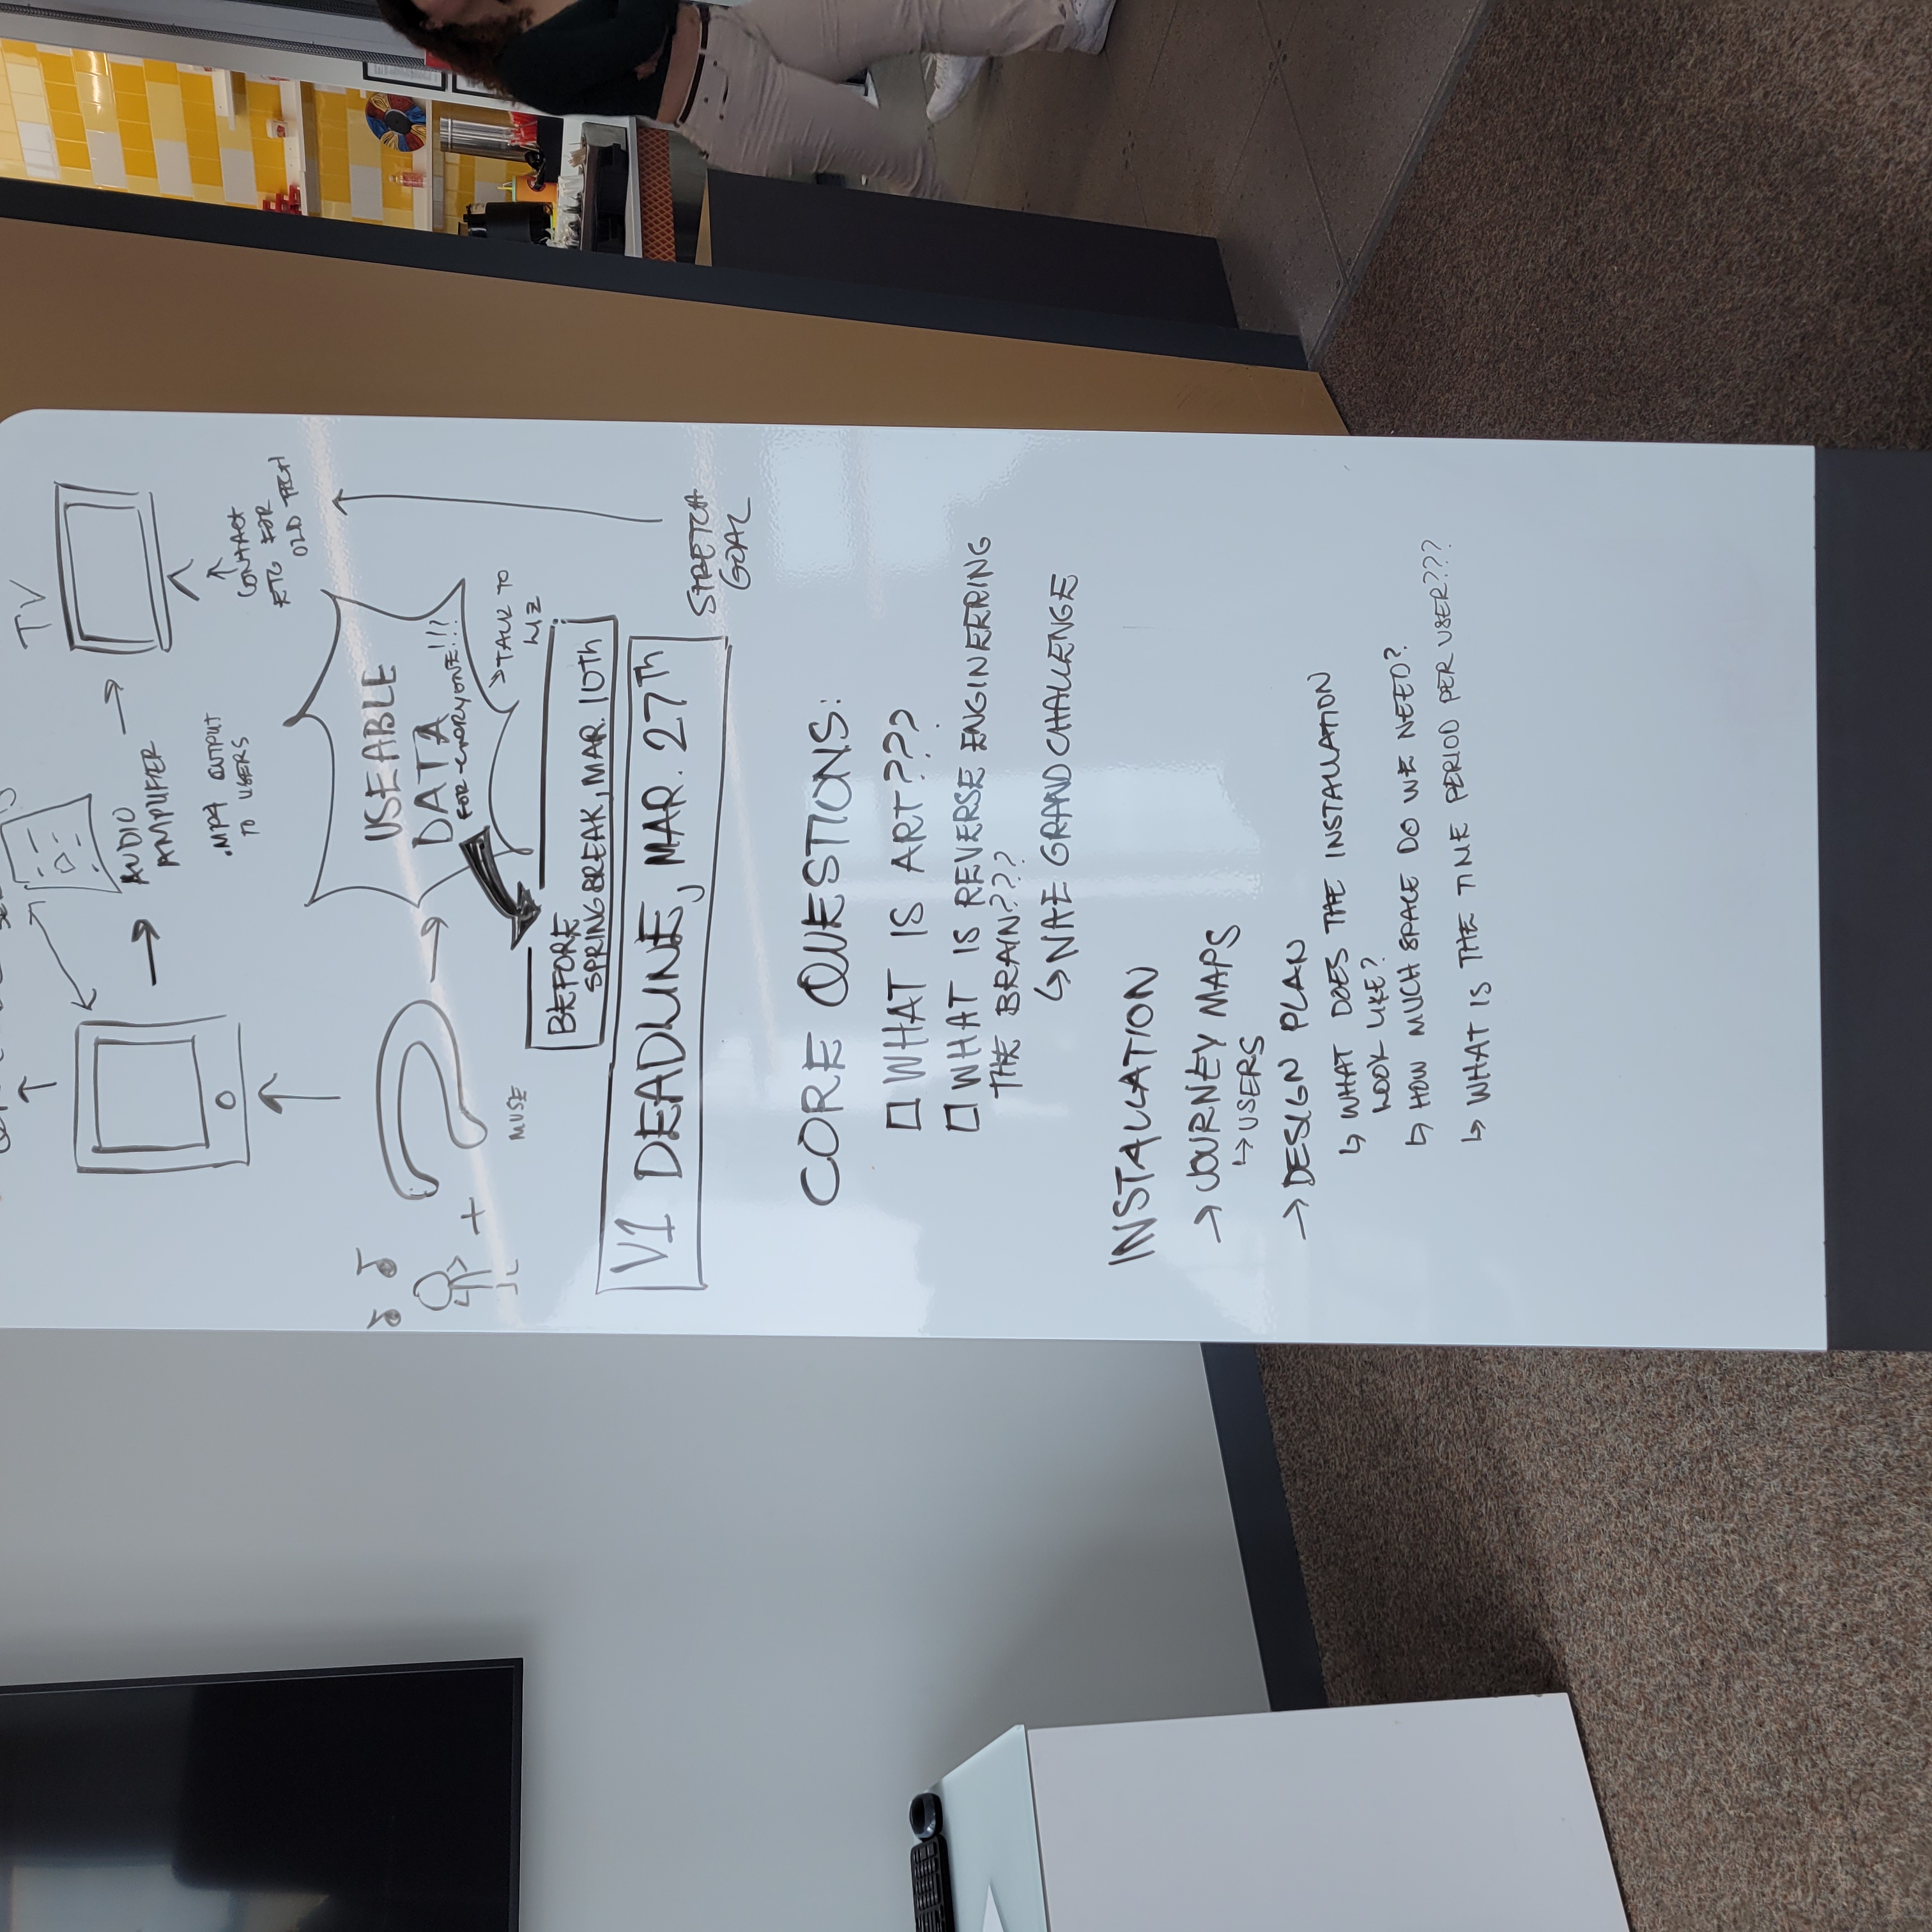 TV
AUDIO
AMPLIFIER
.MP4 OUTPUT
TO USERS
CONTACT
ETG FOR
OLD TECH
USEABLE
DATA
FOR EVERYONE!!!
MUSE
→TALK TO
LIZ
BEFORE
SPRING BREAK, MAR. 10Th
V1 DEADLINE, MAR. 27Th
STRETCH
GOAL
CORE QUESTIONS:
☐ WHAT IS ART???
☐ WHAT IS REVERSE ENGINEERING
THE BRAIN???
↳ NAE GRAND CHALLENGE
INSTALLATION
→ JOURNEY MAPS
↳ USERS
→ DESIGN PLAN
↳ WHAT DOES THE INSTALLATION
LOOK LIKE?
↳ HOW MUCH SPACE DO WE NEED?
↳ WHAT IS THE TIME PERIOD PER USER???